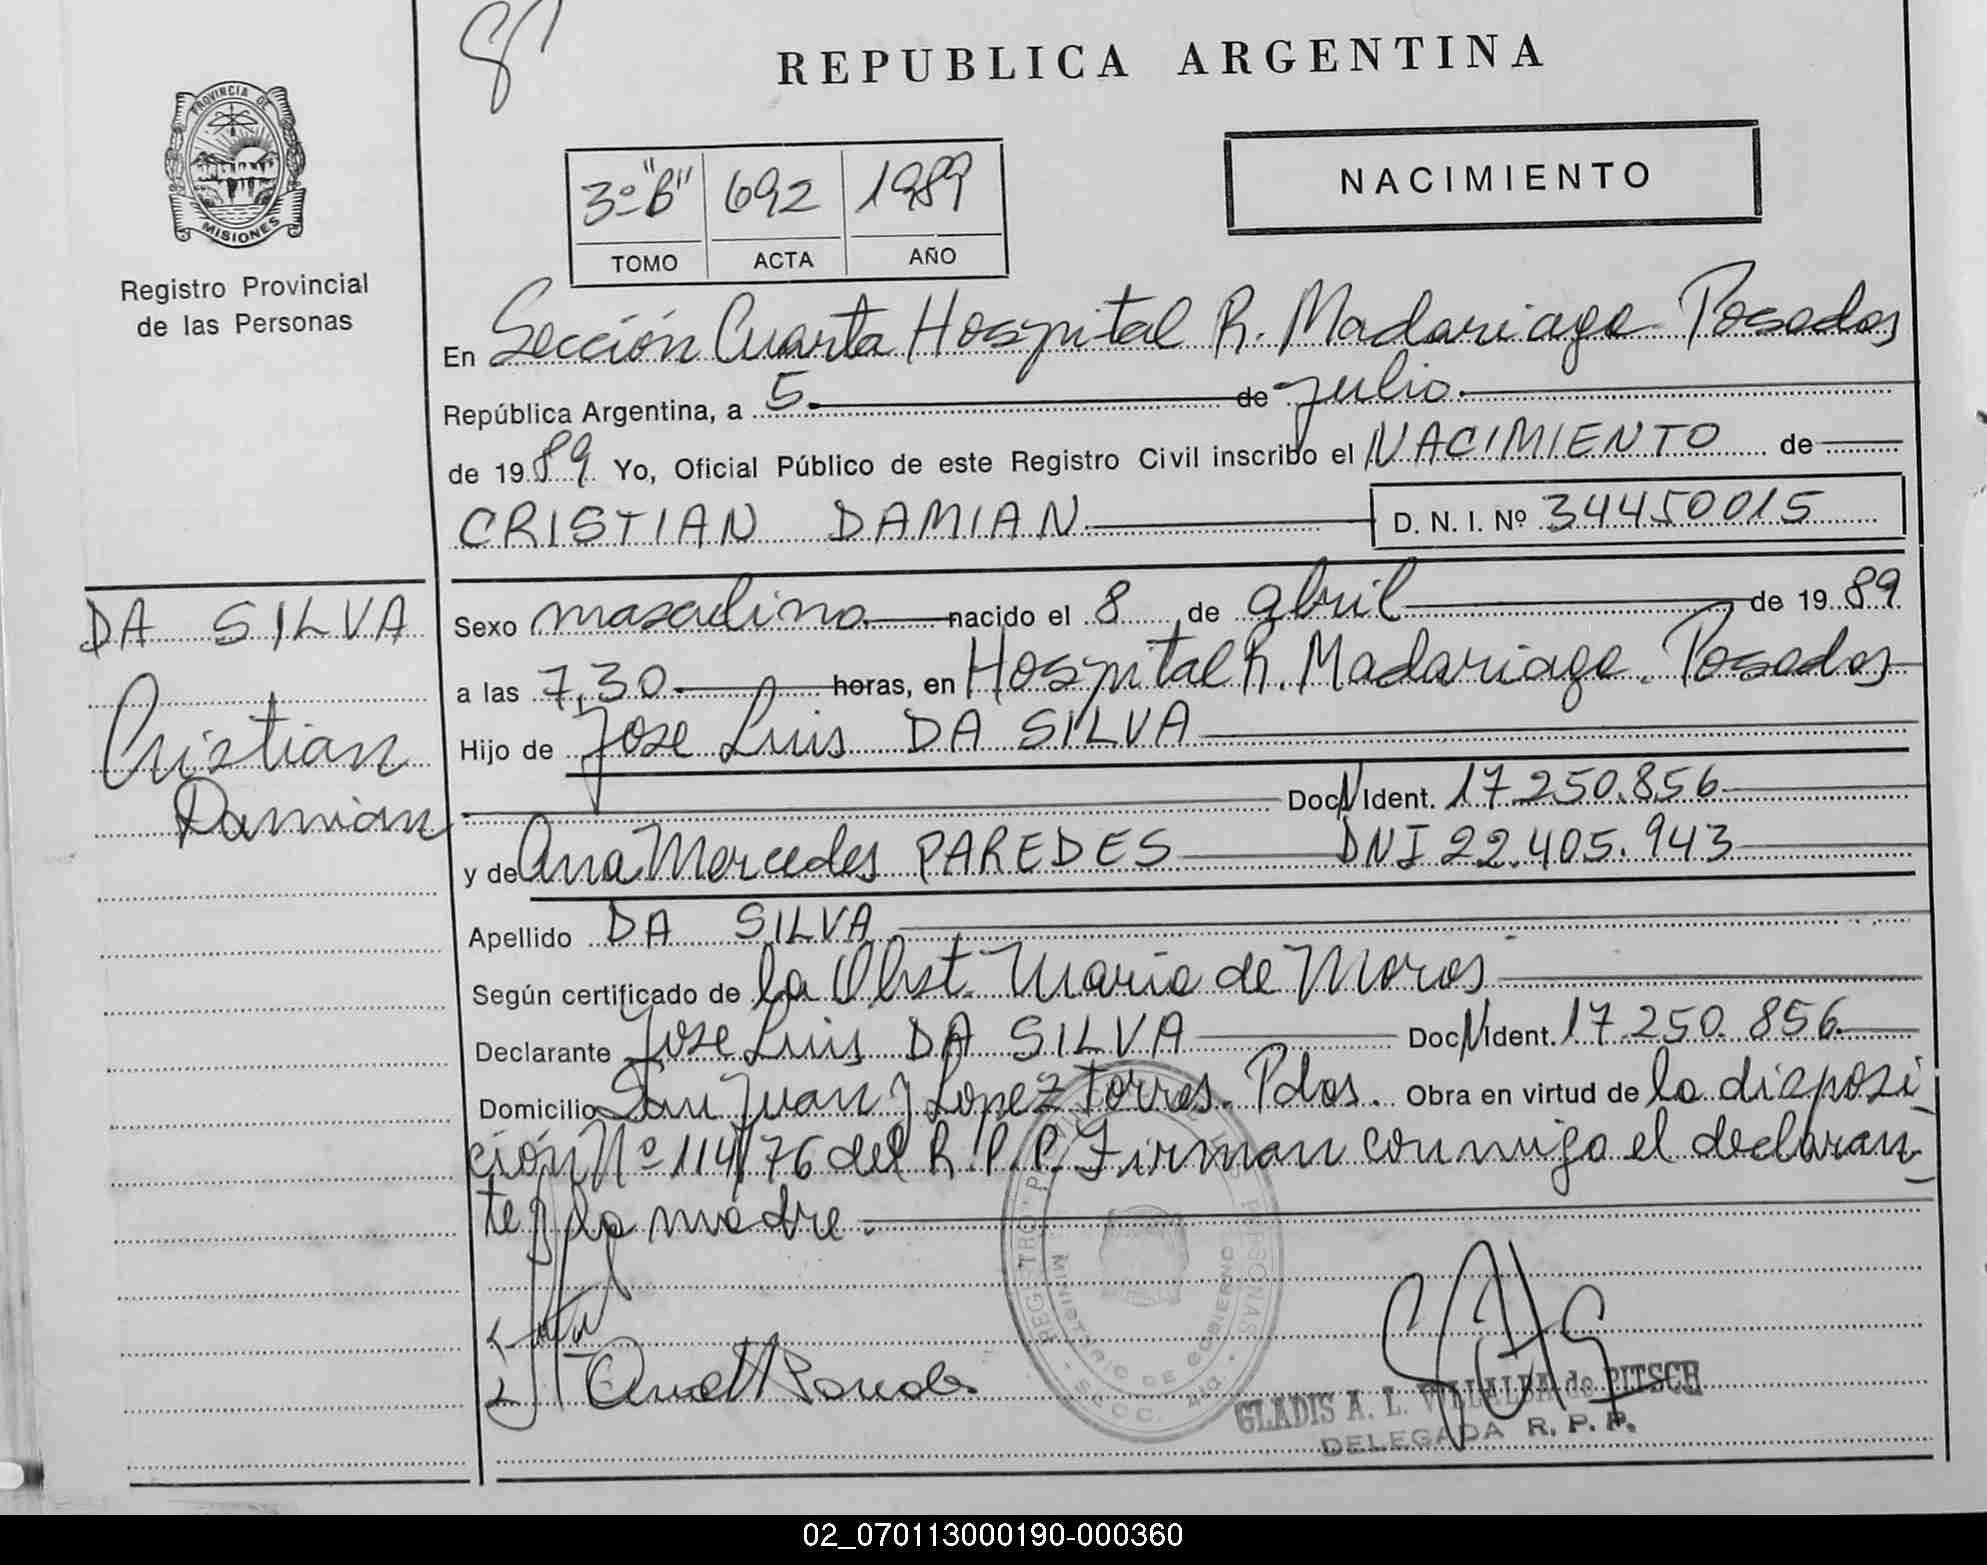 REPUBLICA ARGENTINA
PROVINCIA DE
MISIONES
Registro Provincial
de las Personas
3º "B" 692 1989
TOMO ACTA AÑO
NACIMIENTO
En Sección Cuarta Hospital R. Madariaga Posadas
República Argentina, a 5 de julio
de 1989 Yo, Oficial Público de este Registro Civil inscribo el NACIMIENTO de
CRISTIAN DAMIAN D. N. I. Nº 34450015
DA SILVA
Cristian
Damian
Sexo masculino nacido el 8 de abril de 1989
a las 7,30 horas, en Hospital R. Madariaga. Posadas
Hijo de Jose Luis DA SILVA
Doc N Ident. 17.250.856
y de Ana Mercedes PAREDES DNI 22.405.943
Apellido DA SILVA
Según certificado de la Obst. Maria de Moros
Declarante Jose Luis DA SILVA Doc N Ident. 17.250.856
Domicilio San Juan y Lopez Torres. Pdas. Obra en virtud de la disposi
ción Nº 114/76 del R.P.P. Firman conmigo el declaran
te y la madre.
REGISTRO PERSONAS
MINISTERIO DE GOBIERNO
GLADIS A. L. VILLALBA de PITSCH
DELEGADA R. P. P.
02_070113000190-000360